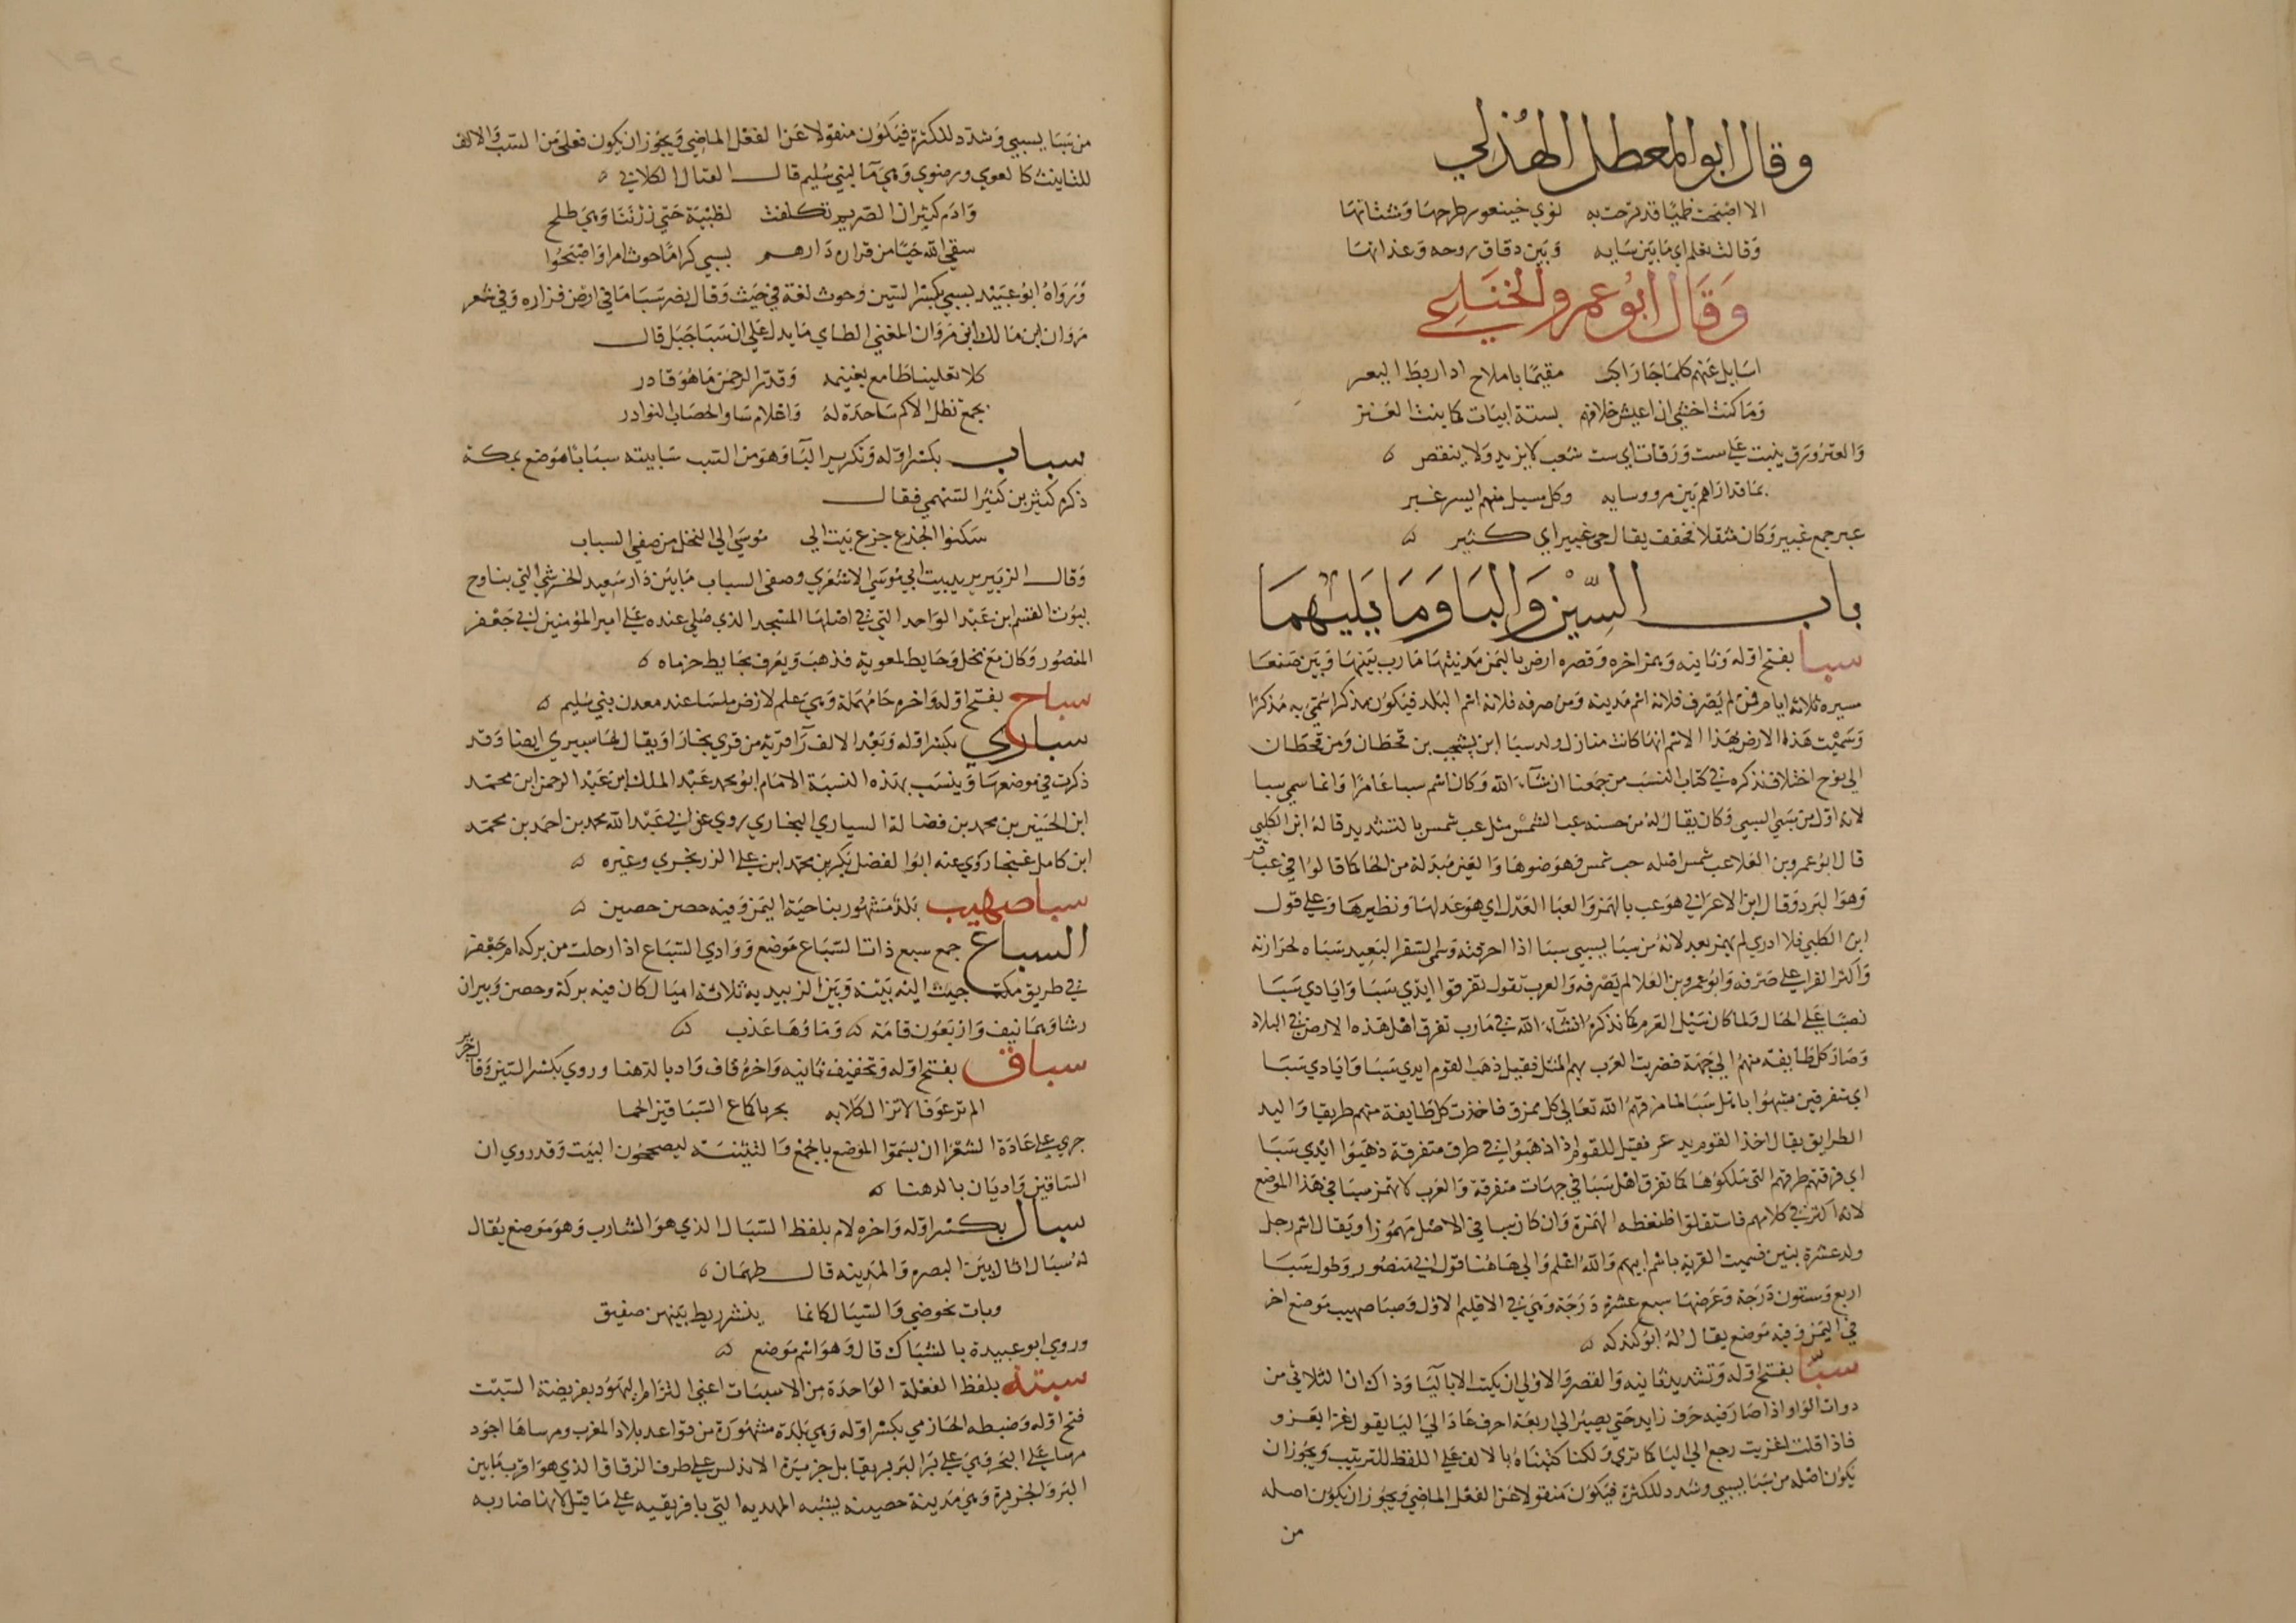 وقال ابو المعطل الهذلي
الا اصبحت ظميا قد نزحت به نوي خيتعور طرحها وشتاتها
وقالت تعلم اي ما بين سايه وبين دقاق روحه وغداتها
وقال ابو عمرو الخناعي
اسايل عنهم كلما جا راكب مقيما باملاح اذا ربط اليعر
وما كنت اخشي ان اعيش خلافهم بستة ابيات كما ينبت العتر
والعتر ورق ينبت علي ست ورقات اي ست شعب لا يزيد ولا ينقص
بما قد اراهم بين مر وسايه وكل مسيل منهم انس غبر
عبر جمع غبير وكان مثقلا فخفف يقال حي غبير اي كثير
باب السين والبا وما يليهما
سبا بفتح اوله وثانيه وهمز اخره وقصره ارض باليمن مدينتها مارب بينها وبين صنعا
مسيره ثلاثه ايام فمن لم يصرف فلانه اسم مدينه ومن صرفه فلانه اسم البلد فيكون مذكرا سمي به مذكرا
وسميت هذه الارض بهذا الاسم لانها كانت منازل ولد سبا ابن يشجب بن يعرب بن قحطان ومن قحطان
الي نوح اختلاف نذكره في كتاب النسب من جمعنا ان شاء الله وكان اسم سبا عامرا وانما سمي سبا
لانه اول من سبي السبي وكان يقال له من حسنه عب الشمس مثل عب شمس بالتشديد قاله ابن الكلبي
قال ابو عمرو بن العلا عب شمس اصله حب شمس وهو ضوها والعين مبدلة من الحا كما قالوا في عب قر
وهو البرد وقال ابن الاعرابي هو عب بالهمز والعبا العدل اي هو عدلها ونظيرها وعلي قول
ابن الكلبي فلا ادري لم يهمز بعد لانه من سبا يسبي سبيا اذا احرقته وسمي السفر البعيد سباه لحرارته
واكثر القرا علي صرفه وابو عمرو بن العلا لم يصرفه والعرب تقول تفرقوا ايدي سبا وايادي سبا
نصبا علي الحال ولما كان سيل العرم كما نذكره ان شاء الله في مارب تفرق اهل هذه الارض في البلاد
وصار كل طايفه منهم الي جهة فضربت العرب بهم المثل فقيل ذهب القوم ايدي سبا وايادي سبا
اي متفرقين شبهوا باهل سبا لما مزقهم الله تعالي كل ممزق فاخذت كل طايفة منهم طريقا واليد
الطريق يقال اخذ القوم يد بحر فقيل للقوم اذا ذهبوا في طرق متفرقة ذهبوا ايدي سبا
اي فرقتهم طرقهم التي سلكوها كما تفرق اهل سبا في جهات متفرقة والعرب لا تهمز سبا في هذا الموضع
لانه اكثر في كلامهم فاستثقلوا ضغطه الهمزة وان كان سبا في الاصل مهموزا ويقال اسم رجل
ولد عشرة بنين فسميت القرية باسم ابيهم والله اعلم والي هاهنا قول ابي منصور وطول سبا
اربع وستون درجة وعرضها سبع عشرة درجة وهي في الاقليم الاول وصبا صهيب موضع اخر
في اليمن وفيه موضع يقال له ابو كندكه
سبا بفتح اوله وتشديد ثانيه والقصر والاولي ان يكتب الا باليا وذاك ان الثلاثي من
دوات الواو اذا صار فيه حرف زايد حتي يصير الي اربعة احرف عاد الي اليا يقول غزا يغزو
فاذا قلت اغزيت رجع الي اليا كما تري ولكنا كتبناه بالالف علي اللفظ للترتيب ويجوز ان
يكون اصله من سبا يسبي وشدد للكثره فيكون منقولا عن الفعل الماضي ويجوز ان يكون اصله
من
من سبا يسبي وشدد للكثرة فيكون منقولا عن الفعل الماضي ويجوز ان يكون فعلي من السب والالف
للتانيث كالعوي ورضوي وهي ما لبني سليم قال القتال الكلابي
وادم كثيران الصريم تكلفت لظبية حتي زرننا وهي طلح
سقي الله حيا من فزاره دارهم بسبي كراما حوث امسوا واصبحوا
ورواه ابو عبيد بسبي بكسر السين وحوث لغة في حيث وقال نصر سبا ما في ارض فزاره وفي شعر
مروان ابن مالك ابن مروان المغني الطاي ما يدل علي ان سبا جبل قال
كلا ثعلبينا طامع بغنيمه وقد قدر الرحمن ما هو قادر
بجمع تظل الاكم ساجدة له واعلام سبا والهضاب النوادر
سباب بكسر اوله وتكرير البا وهو من السب سابيته سبابا موضع بمكة
ذكره كثير بن كثير السهمي فقال
سكنوا الجزع جزع بيت ابي موسي الي النخل من صفي السباب
وقال الزبير يريد بيت ابي موسي الاشعري وصفي السباب ما بين دار سعيد الحرشي التي يناوح
بيوت القسم ابن عبد الواحد التي في اصلها المسجد الذي صلي عنده علي امير المؤمنين ابي جعفر
المنصور وكان مع نخل وحايط لمعوية فذهب ويعرف بحايط خرماه
سباح بفتح اوله واخره حا مهملة وهي علم لارض ملسا عند معدن بني سليم
سباري بكسر اوله وبعد الالف را قرية من قري بخارا ويقال لها سبيري ايضا وقد
ذكرت في موضعها وينسب بهذه النسبة الامام ابو محمد عبد الملك ابن عبد الرحمن ابن محمد
ابن الحسين بن محمد بن فضالة السباري البخاري روي عن ابي عبد الله محمد بن احمد بن محمد
ابن كامل غنجار روي عنه ابو الفضل بكر بن محمد ابن علي الزرنجري وغيره
سبا صهيب بلد مشهور بناحية اليمن وفيه حصن حصين
السباع جمع سبع ذات السباع موضع ووادي السباع اذا رحلت من بركه ام جعفر
في طريق مكه جيت اليه بينه وبين الزبيديه ثلاثة اميال كان فيه بركة وحصن وبيران
رشاوهما نيف واربعون قامة وماوها عذب
سباق بفتح اوله وتخفيف ثانيه واخره قاف واد بالدهنا وروي بكسر السين وقال جرير
الم تر عوفا لا تزال كلابه بجر باكماع السباقين الحما
جري علي عادة الشعرا ان يسموا الموضع بالجمع والتثنيه ليصححون البيت وقد روي ان
الساقين واديان بالدهنا
سبال بكسر اوله واخره لام بلفظ السبال الذي هو الشارب وهو موضع يقال
له سبال اثال بين البصره والمدينه قال طهمان
وبات بحوضي والسبال كانما ينشر ريط بينهن صفيق
وروي ابو عبيدة بالشباك قال وهو اسم موضع
سبتة بلفظ الفعلة الواحدة من الاسبات اعني التزام اليهود بفريضة السبت
فتح اوله وضبطه الحازمي بكسر اوله وهي بلدة مشهورة من قواعد بلاد المغرب ومرساها اجود
مرسا علي البحر وهي علي بر البربر يقابل جزيرة الاندلس علي طرف الزقاق الذي هو اقرب ما بين
البر والجزيرة وهي مدينة حصينه يشبه المهديه التي بافريقيه علي ما قيل لانها ضاربه